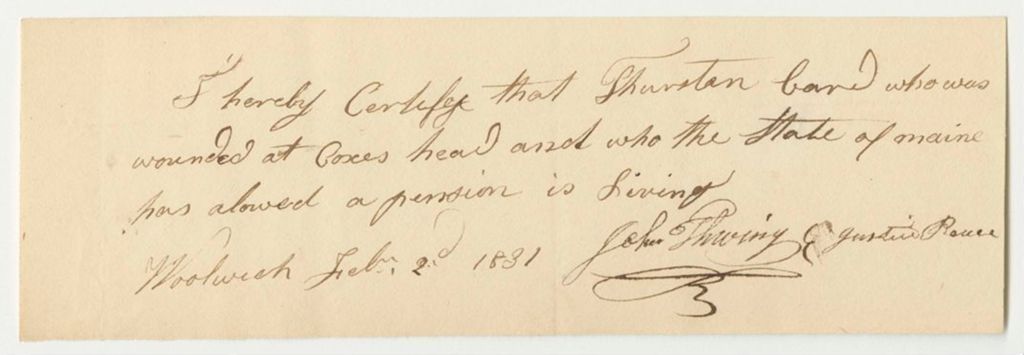 I hereby Certifye that Thurstan Card who was
wounded at Coxes head and who the State of maine
has alowed a pension is Living
John Thwing Justice Peace
Woolwich Feby. 2d 1831